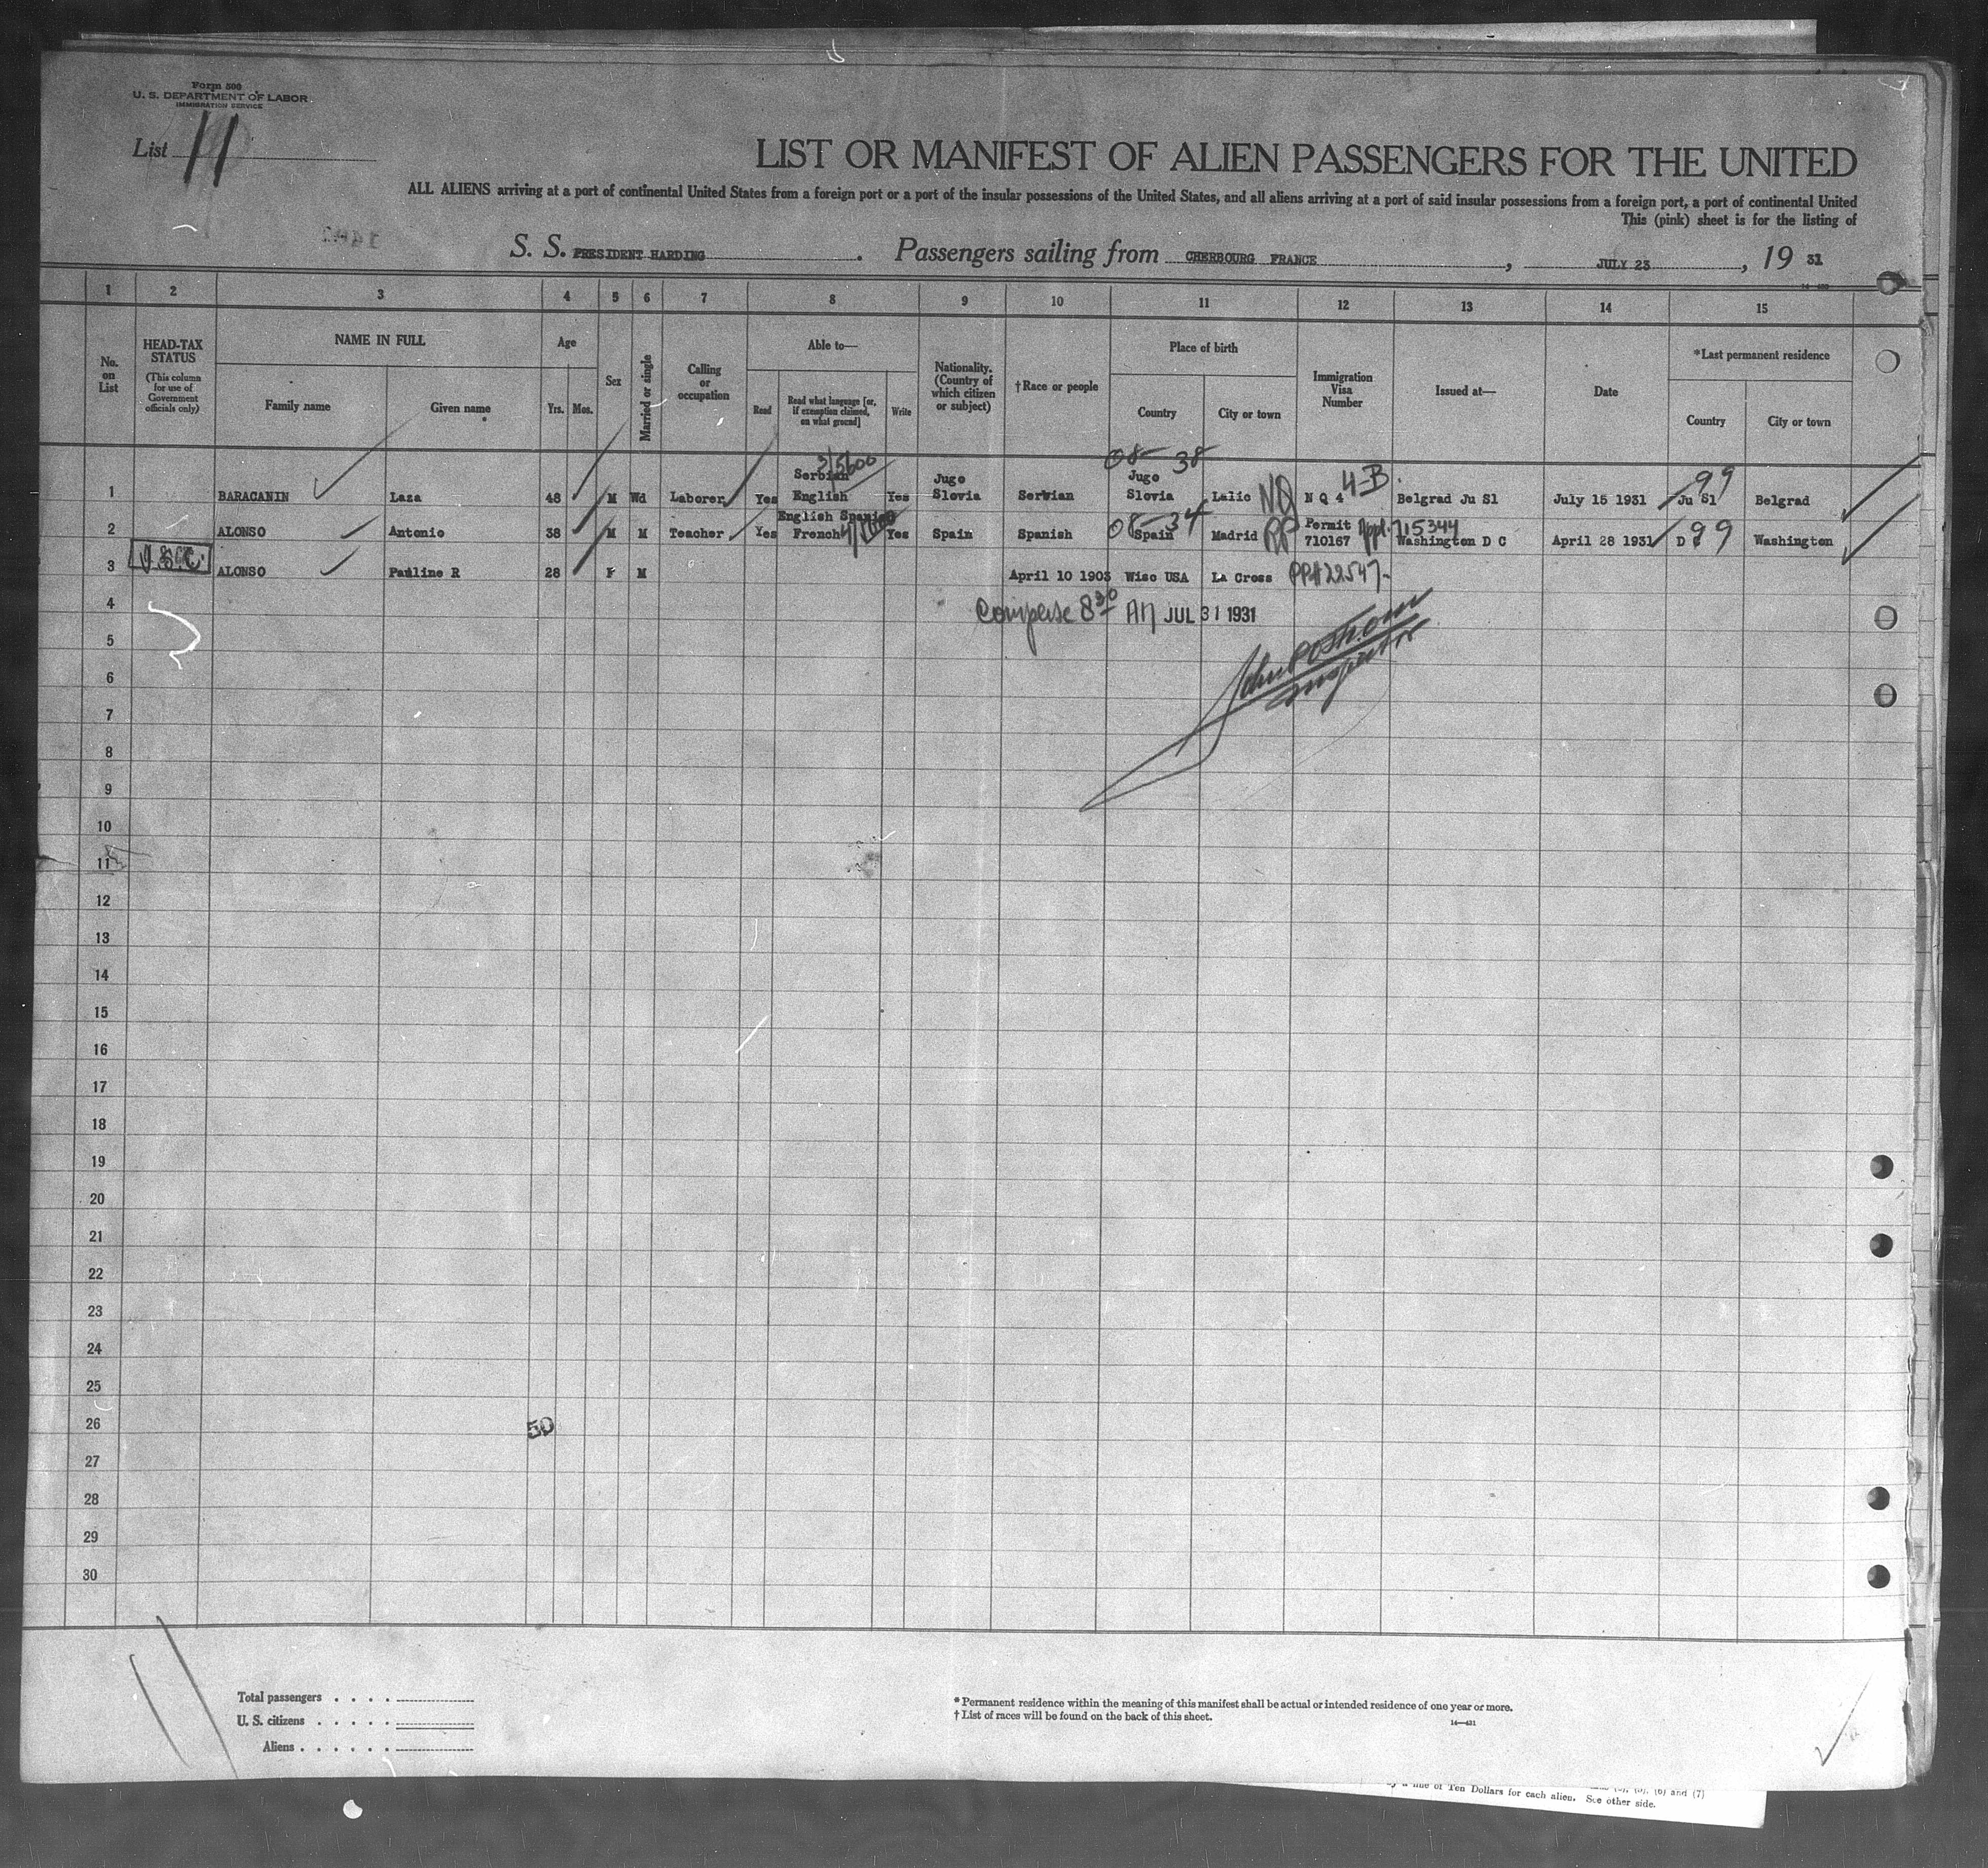 Form 500
U. S. DEPARTMENT OF LABOR
IMMIGRATION SERVICE
List 11
LIST OR MANIFEST OF ALIEN PASSENGERS FOR THE UNITED
ALL ALIENS arriving at a port of continental United States from a foreign port or a port of the insular possessions of the United States, and all aliens arriving at a port of said insular possessions from a foreign port, a port of continental United
This (pink) sheet is for the listing of
S. S. PRESIDENT HARDING. Passengers sailing from CHERBOURG FRANCE, JULY 23, 19 31
1 2 3 4 5 6 7 8 9 10 11 12 13 14 15
No. on List
HEAD-TAX STATUS
(This column for use of Government officials only)
NAME IN FULL
Family name Given name
Age
Yrs. Mos.
Sex
Married or single
Calling or occupation
Able to—
Read
Read what language [or, if exemption claimed, on what ground]
Write
Nationality. (Country of which citizen or subject)
†Race or people
Place of birth
Country City or town
Immigration Visa Number
Issued at—
Date
*Last permanent residence
Country City or town
08- 38
1 BARACANIN Laza 48 M Wd Laborer Yes Serbian English Yes Jugo Slovia Serbian Jugo Slovia Lalic NQ N Q 4 4-B Belgrad Ju Sl July 15 1931 Ju Sl 99 Belgrad
2 ALONSO Antonio 38 M M Teacher Yes English Spanish French Yes Spain Spanish 08-34 Spain Madrid RP Permit 710167 Appl. 715344 Washington D C April 28 1931 D C 99 Washington
3 ALONSO Pauline R 28 F M April 10 1903 Wisc USA La Cross PP#22547-
4 8 30 AM JUL 31 1931
5
6
Inspector
7
8
9
10
11
12
13
14
15
16
17
18
19
20
21
22
23
24
25
26 50
27
28
29
30
11
Total passengers
U. S. citizens
Aliens
* Permanent residence within the meaning of this manifest shall be actual or intended residence of one year or more.
† List of races will be found on the back of this sheet.
14—421
by a fine of Ten Dollars for each alien. See other side.
(6) and (7)